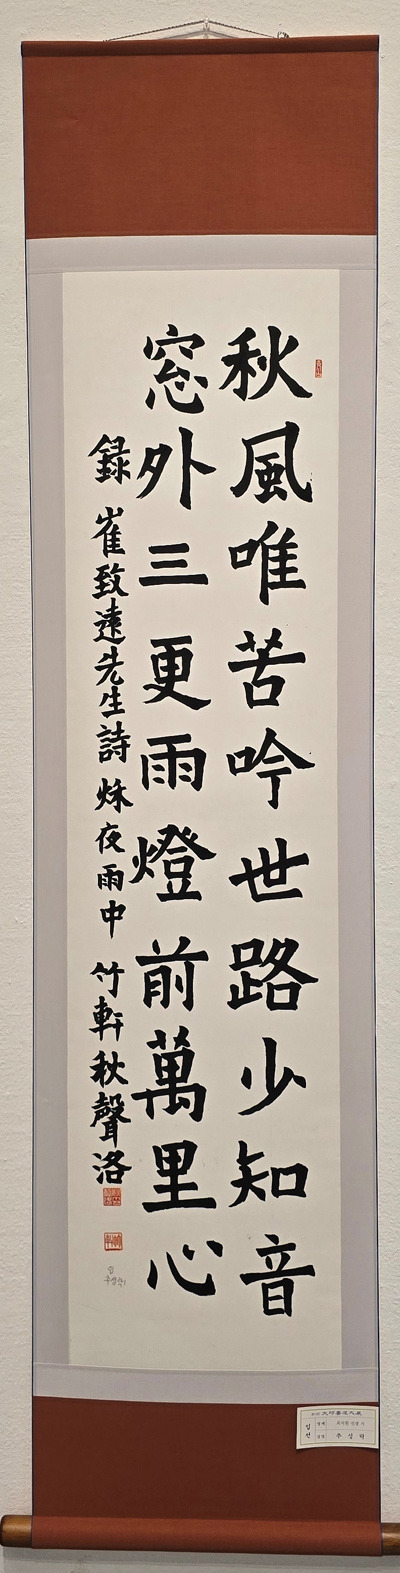 秋風唯苦吟世路少知音
窓外三更雨燈前萬里心
録 崔致遠先生詩 秌夜雨中 竹軒秋聲洛
입선
추성락